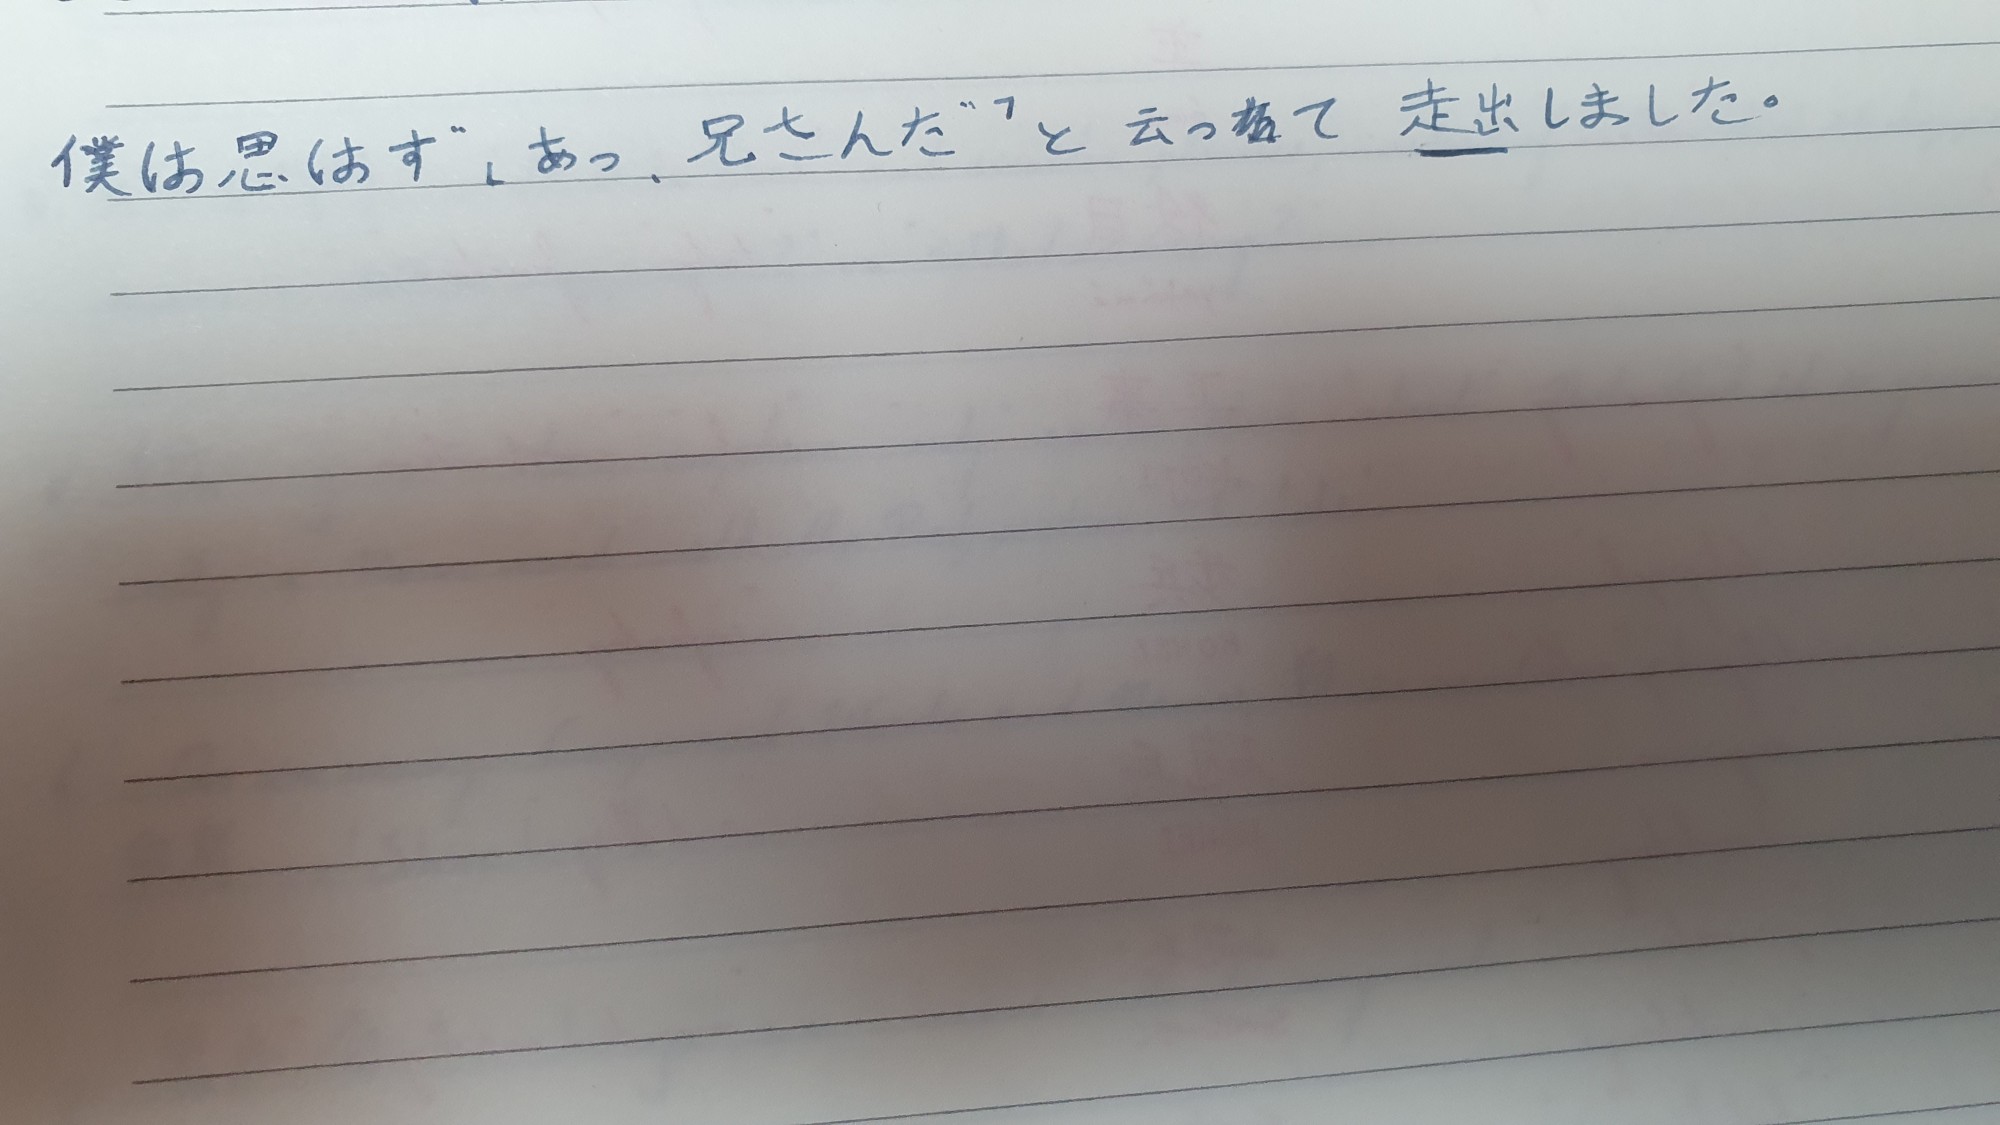 僕は思はず「あっ、兄さんだ」と云って走出しました。